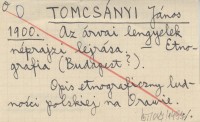 TOMCSÁNYI János
1900. Az árvai lengyelek
néprajzi leírása. Etno-
grafia (Budapest?).
Opis etnograficzny lud-
ności polskiej na Orawie.